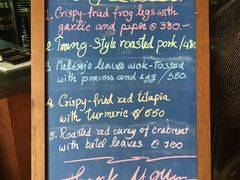 1. Crispy-fried frog legs with
garlic and piper @ 380.-
2. Trang-Style roasted pork /480
3. Melinjo leaves wok-tossed
with prawns and egg /350
4. Crispy-fried red tilapia
with turmeric @ 550
5. Roasted red curry of crabmeat
with betel leaves @ 700
Thank You